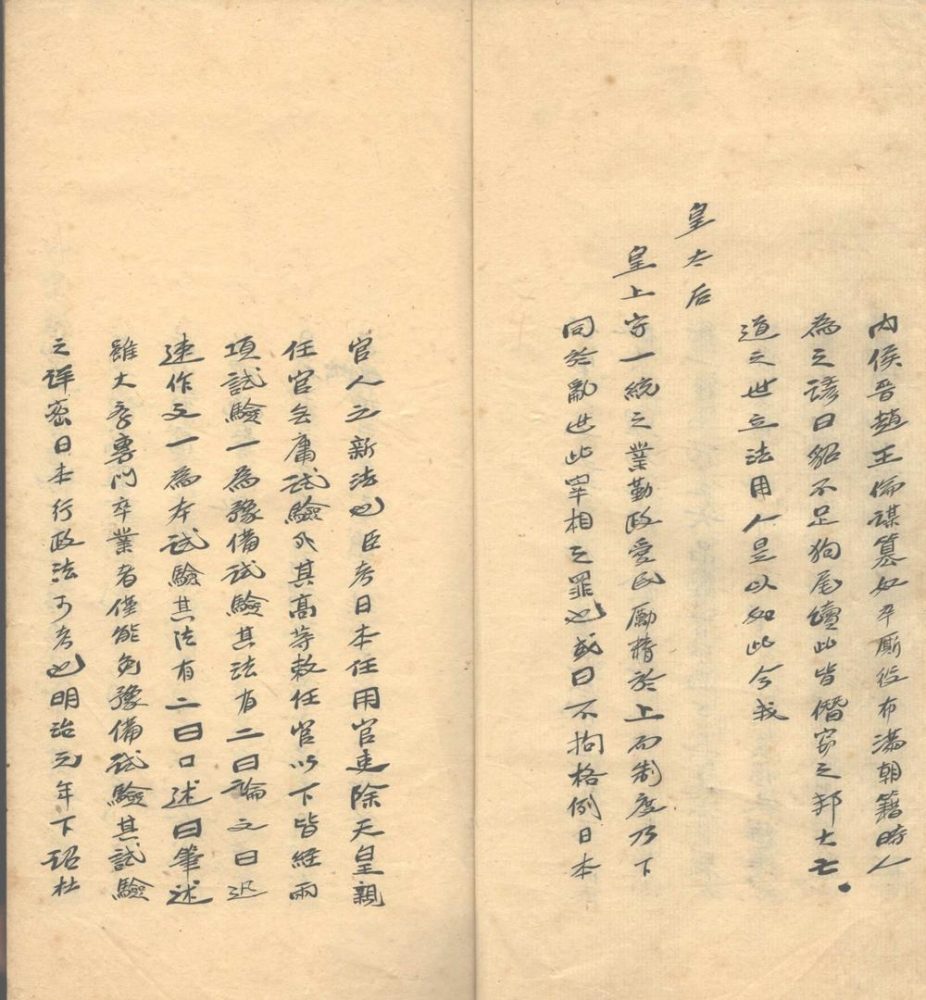 內侯晉趙王倫謀篡奴卒厮役布滿朝籍時人
為之諺曰貂不足狗尾續此皆僭竊之邦大亡
道之世立法用人是以如此今我
皇太后
皇上守一統之業勤政愛民勵精於上而制度乃下
同於亂世此宰相之罪也或曰不拘格例日本
官人之新法也臣考日本任用官吏除天皇親
任官無庸試驗外其高等敕任官以下皆經兩
項試驗一為豫備試驗其法有二曰論文曰迅
速作文一為本試驗其法有二曰口述曰筆述
雖大學專門卒業者僅能免豫備試驗其試驗
之詳密日本行政法可考也明治元年下詔杜